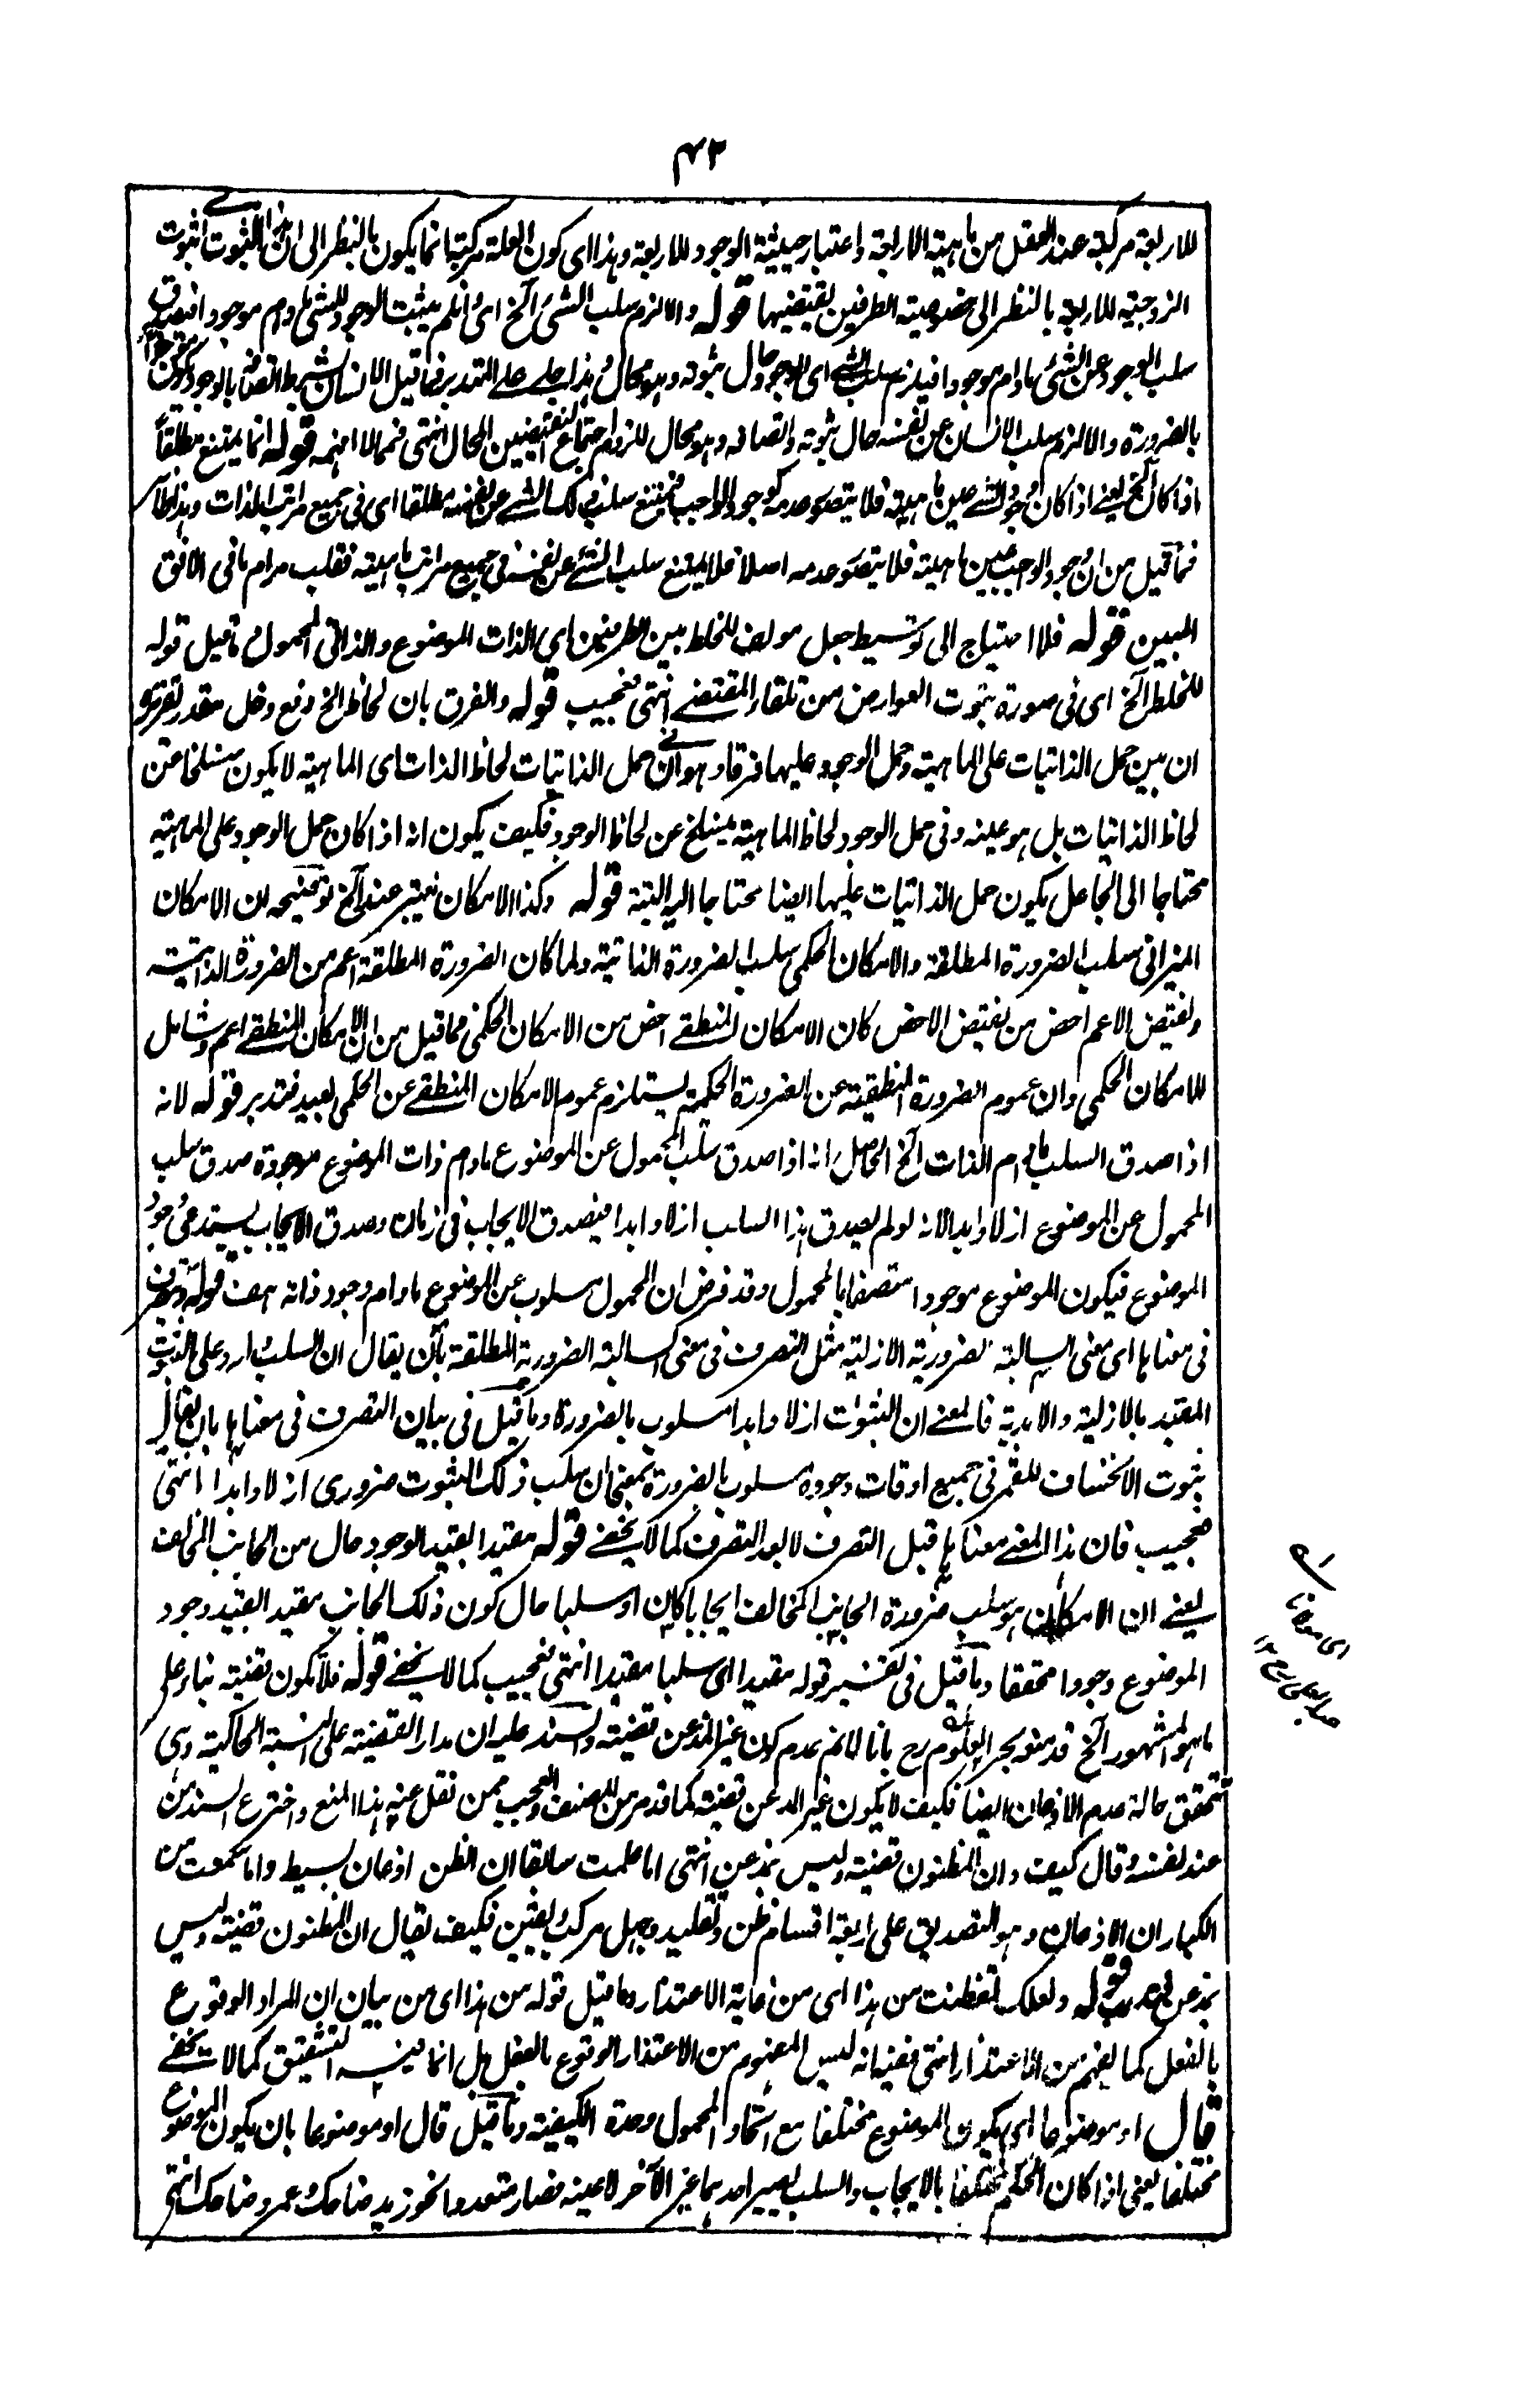 ٤٣
للاربعة مركبة عند العقل من ماهية الاربعة واعتبار حيثية الوجود للاربعة وهذا اى كون العلة مركبة انما يكون بالنظر الى ان هذا الثبوت ثبوت
الزوجية للاربعة بالنظر الى خصوصية الطرفين يقتضيها قوله والا لزم سلب الشئ الخ اى ان لم يثبت الوجود للشئ مادام موجودا فيصدق
سلب الوجود عن الشئ مادام موجودا فيلزم سلب الشئ اى الوجود حال ثبوته وهو محال هذا جلى على المتدبر فما قيل الانسان بشرط اتصافه بالوجود يكون موجودا
بالضرورة والا لزم سلب الانسان عن نفسه حال ثبوته واتصافه وهو محال للزوم اجتماع النقيضين المحال انتهى فمما لا افهمه قوله انما يمتنع مطلقا
اذا كان الخ يعنى اذا كان وجود الشئ عين ماهيته فلا يتصور عدمه كوجود الواجب فيمتنع سلب ذلك الشئ عن نفسه مطلقا اى فى جميع مراتب الذات وهذا ظاهر
فما قيل من ان وجود الواجب عين ماهيته فلا يتصور عدمه اصلا فلا يمتنع سلب الشئ عن نفسه فى جميع مراتب ماهيته فقلب مرام ما فى الافق
المبين قوله فلا احتياج الى توسيط جعل مولف للخلط بين الطرفين اى الذات الموضوع والذاتى المحمول وما قيل قوله
للخلط الخ اى فى صورة ثبوت العوارض من تلقاء المقتضى انتهى فعجيب قوله والفرق بان لحاظ الخ دفع دخل مقدر تقريره
ان بين حمل الذاتيات على الماهية وحمل الوجود عليها فرقا وهو ان فى حمل الذاتيات لحاظ الذات اى الماهية لا يكون منسلخا عن
لحاظ الذاتيات بل هو عينه وفى حمل الوجود لحاظ الماهية ينسلخ عن لحاظ الوجود فكيف يكون انه اذا كان حمل الوجود على الماهية
محتاجا الى الجاعل يكون حمل الذاتيات عليها ايضا محتاجا اليه البتة قوله وكذا الامكان يعتبر عند الخ توضيحه ان الامكان
الميزانى سلب الضرورة المطلقة والامكان الحكمى سلب الضرورة الذاتية ولما كان الضرورة المطلقة اعم من الضرورة الذاتية
ونقيض الاعم اخص من نقيض الاخص كان الامكان المنطقى اخص من الامكان الحكمى فما قيل من ان الامكان المنطقى اعم وشامل
للامكان الحكمى وان عموم الضرورة المنطقية عن الضرورة الحكمية يستلزم عموم الامكان المنطقى عن الحكمى بعيد فتدبر قوله لانه
اذا صدق السلب مادام الذات الخ الحاصل انه اذا صدق سلب المحمول عن الموضوع مادام ذات الموضوع موجودة صدق سلب
المحمول عن الموضوع ازلا وابدا لانه لو لم يصدق هذا السلب ازلا وابدا فيصدق الايجاب فى زمان وصدق الايجاب يستدعى وجود
الموضوع فيكون الموضوع موجودا متصفا بالمحمول وقد فرض ان المحمول مسلوب عن الموضوع مادام وجود ذاته هف قوله وتصرف
فى معناها اى معنى السالبة الضرورية الازلية مثل التصرف فى معنى السالبة الضرورية المطلقة بان يقال ان السلب وارد على الثبوت
المقيد بالازلية والابدية فالمعنى ان الثبوت ازلا وابدا مسلوب بالضرورة وما قيل فى بيان التصرف فى معناها بان يقال
ثبوت الانخساف للقمر فى جميع اوقات وجوده مسلوب بالضرورة بمعنى ان سلب ذلك الثبوت ضرورى ازلا وابدا انتهى
فعجيب فان هذا المعنى معناها قبل التصرف لا بعد التصرف كما لا يخفى قوله مقيدا بقيد الوجود حال من الجانب المخالف
يعنى ان الامكان هو سلب ضرورة الجانب المخالف ايجابا كان او سلبا حال كون ذلك الجانب مقيدا بقيد وجود
الموضوع وجودا محققا وما قيل فى تفسير قوله مقيدا اى سلبا مقيدا انتهى فعجيب كما لا يخفى قوله فلا تكون قضية بناء على
ما هو المشهور الخ قد منعه بحر العلوم رح بانا لا نم عدم كون غير المذعن قضية والسند عليه ان مدار القضية على النسبة الحاكية وهى
تتحقق حالة عدم الاذعان ايضا فكيف لا يكون غير المذعن قضية كما قد مر من المصنف والعجب ممن نقل عنه هذا المنع واخترع السند من
عند نفسه وقال كيف وان المظنون قضية وليس بمذعن انتهى اما علمت سابقا ان الظن اذعان بسيط واما سمعت من
الكبار ان الاذعان وهو التصديق على اربعة اقسام ظن وتقليد وجهل مركب ويقين فكيف يقال ان المظنون قضية وليس
بمذعن فتدبر قوله ولعلك تفطنت من هذا اى من غاية الاعتذار وما قيل قوله من هذا اى من بيان ان المراد الوقوع
بالفعل كما يفهم من الاعتذار انتهى ففيه انه ليس المفهوم من الاعتذار الوقوع بالفعل بل انما فيه التشقيق كما لا يخفى
قال او موضوعا اى يكون الموضوع مختلفا مع اتحاد المحمول وحدة الكيفية وما قيل قال او موضوعا بان يكون الموضوع
مختلفا يعنى اذا كان الحكم مختلفا بالايجاب والسلب يصير احدهما غير الآخر لا عينه فصار متعددا نحو زيد ضاحك وعمرو ضاحك انتهى
اى مولانا
عبد العلى رح ١٢